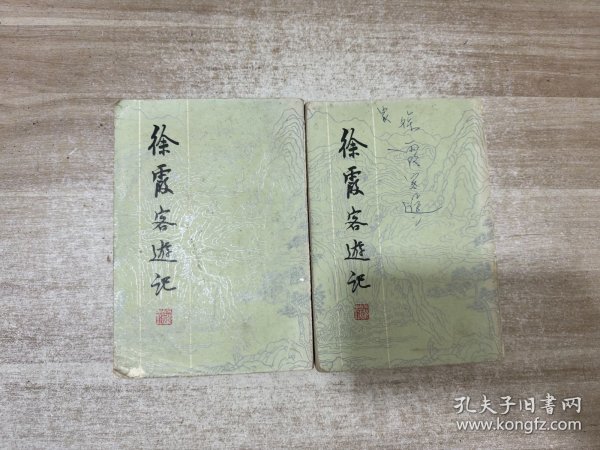 徐霞客遊记
徐霞客遊记
徐霞客遊
孔夫子旧书网
www.kongfz.com